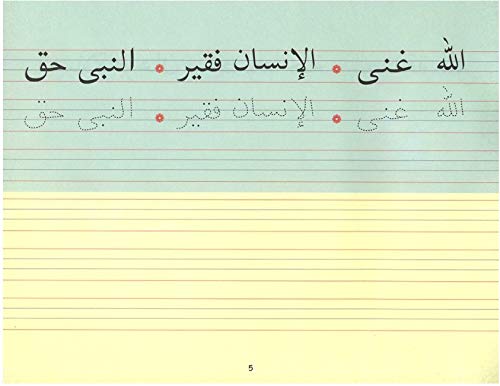 الله غنى ❁ الإنسان فقير ❁ النبى حق
الله غنى ❁ الإنسان فقير ❁ النبى حق
5